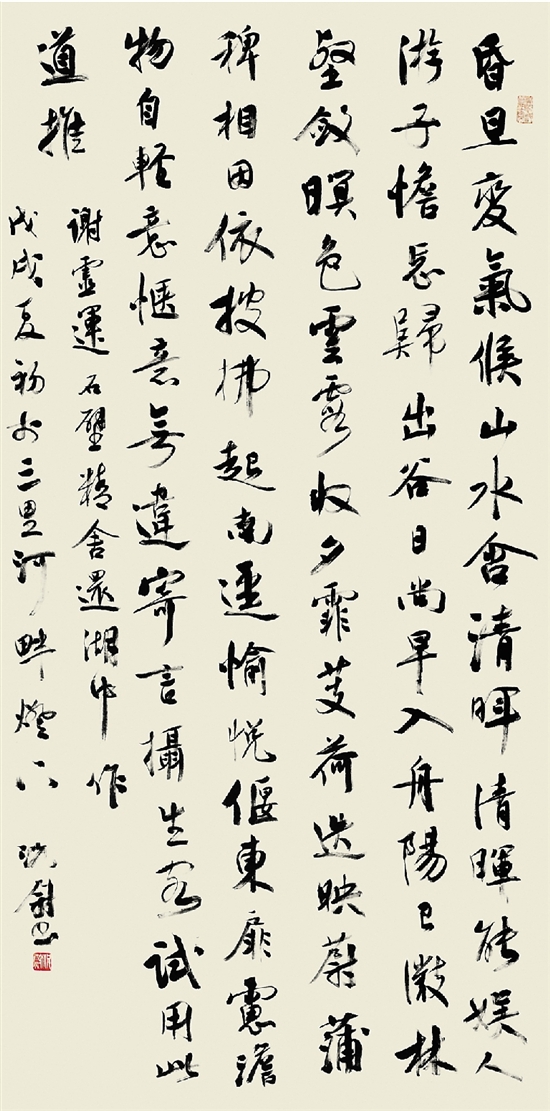 昏旦變氣候山水含清暉清暉能娱人
游子憺忘歸出谷日尚早入舟陽已微林
壑斂暝色雲霞收夕霏芰荷迭映蔚蒲
稗相因依披拂趨南逕愉悦偃東扉慮澹
物自輕意愜意無違寄言攝生客試用此
道推
謝靈運石壁精舍還湖中作
戊戌夏初於三里河畔燈下